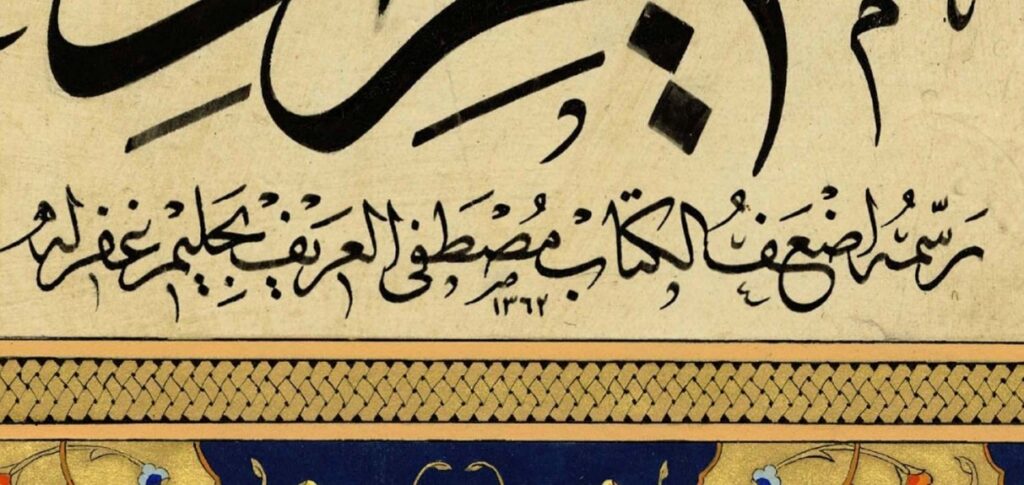 رسمه اضعف الكتاب مصطفى العريف بحليم غفر له
١٣٦٢